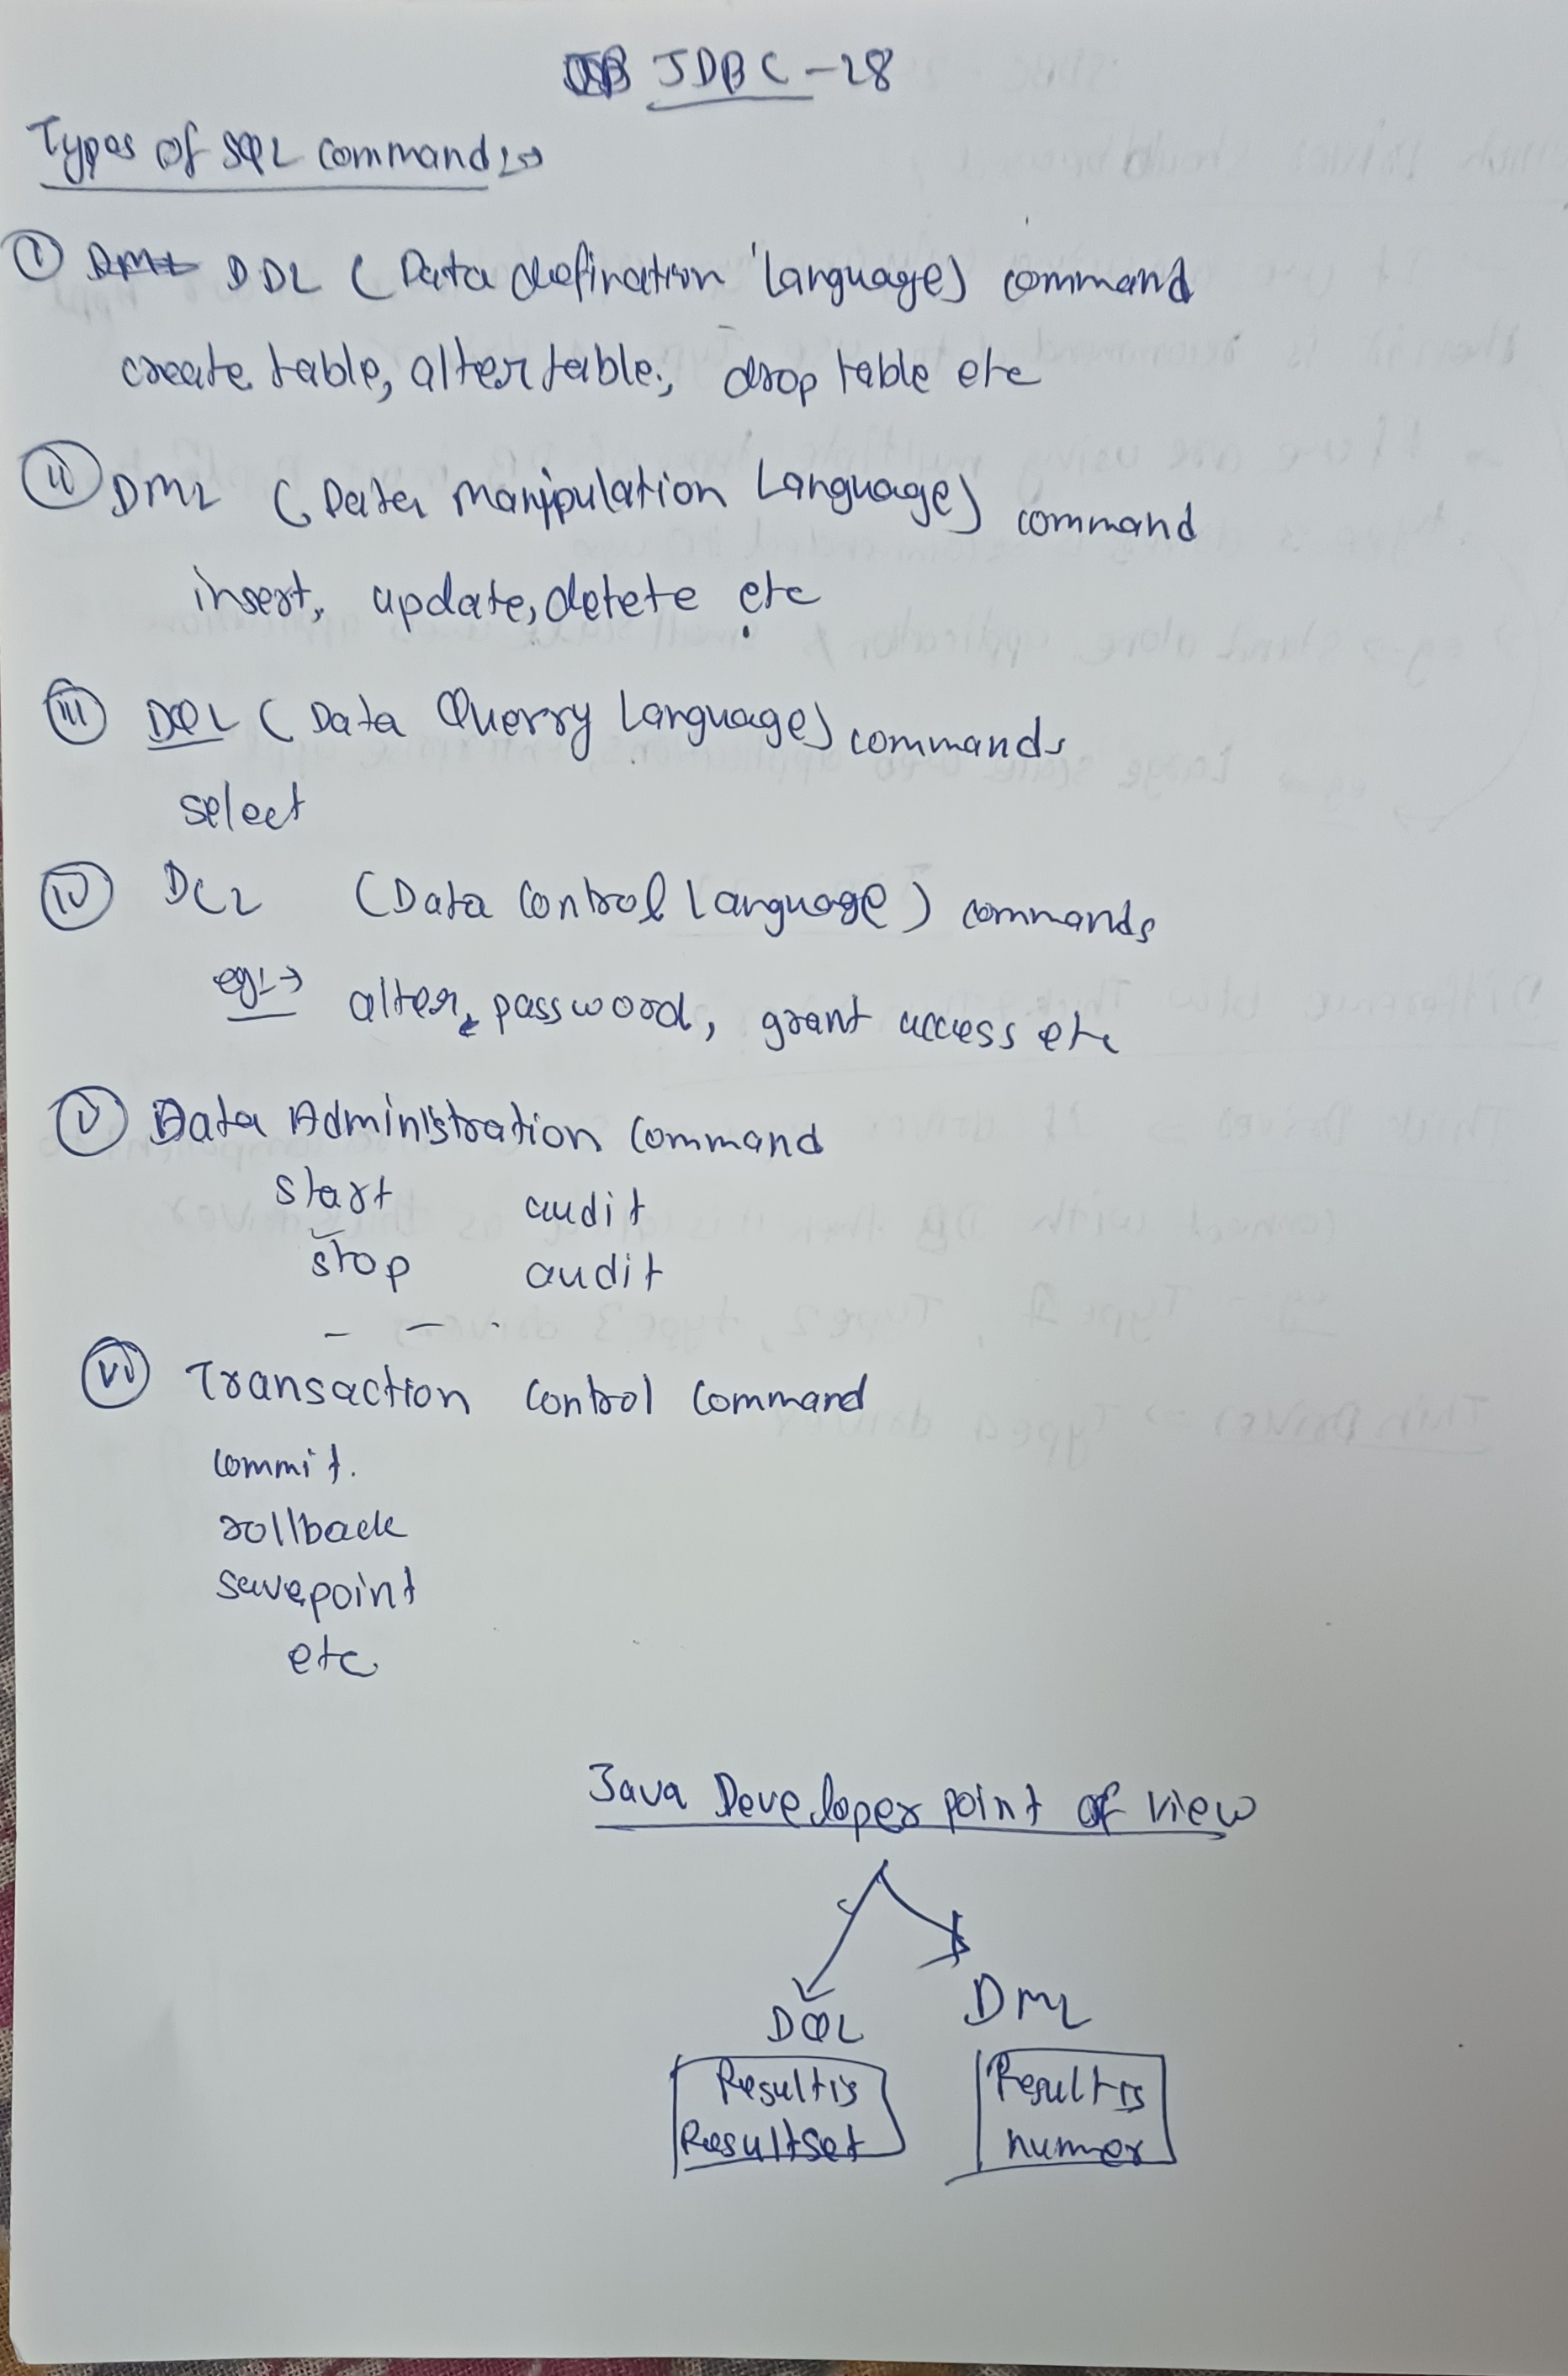 JDBC - 28
Types of SQL Commands :->
(i) DML DDL (Data defination Language) command
create table, alter table, drop table etc
(ii) DML (Data Manipulation Language) command
insert, update, detete etc
(iii) DQL (Data Querry Language) commands
select
(iv) DCL (Data Control Language) commands
eg:-> alter, password, grant access etc
(v) Data Administration Command
start audit
stop audit
- - -
(vi) Transaction Control Command
commit.
rollback
savepoint
etc
Java Developer point of view
DQL DML
Result is Result is
ResultSet numer